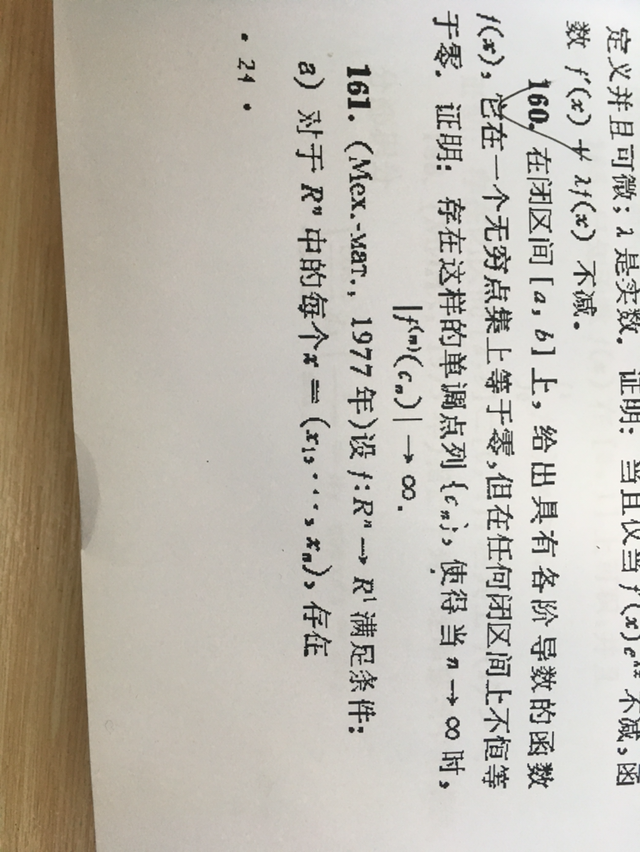 定义并且可微；λ是实数。证明：当且仅当 f(x)e^{λx} 不减，函
数 f′(x) + λf(x) 不减。
160. 在闭区间 [a, b] 上，给出具有各阶导数的函数
f(x)，它在一个无穷点集上等于零，但在任何闭区间上不恒等
于零。证明：存在这样的单调点列 {cₙ}，使得当 n → ∞ 时，
|f⁽ⁿ⁾(cₙ)| → ∞.
161. (Мех.-мат., 1977 年)设 f: Rⁿ → R¹ 满足条件：
a) 对于 Rⁿ 中的每个 x = (x₁, ···, xₙ)，存在
• 24 •